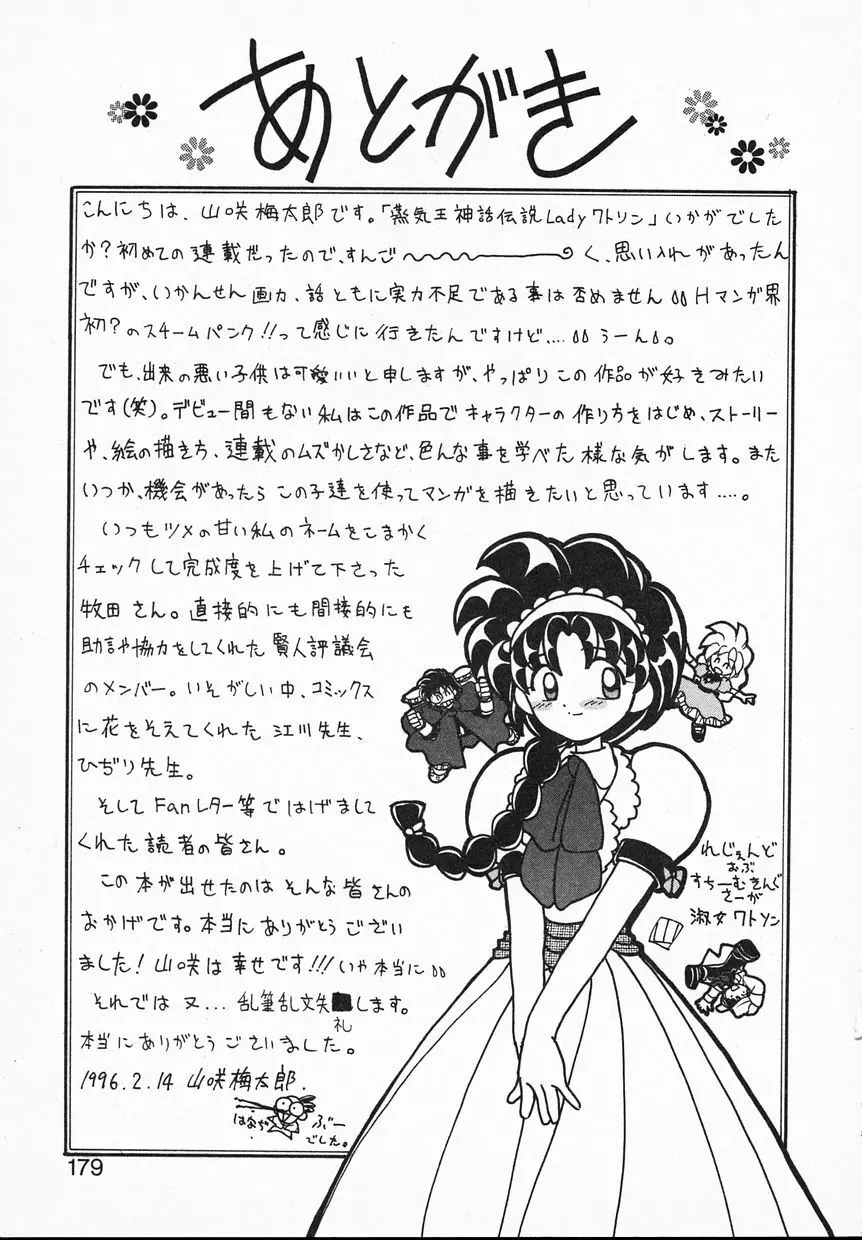 あとがき
こんにちは、山咲梅太郎です。「蒸気王神話伝説Ladyワトソン」いかがでした
か?初めての連載だったので、すんご〜〜〜〜く、思い入れがあったん
ですが、いかんせん画力、話ともに実力不足である事は否めません Hマンガ界
初?のスチームパンク!!って感じに行きたんですけど.... うーん。
でも、出来の悪い子供は可愛いいと申しますが、やっぱりこの作品が好きみたい
です(笑)。デビュー間もない私はこの作品でキャラクターの作り方をはじめ、ストーリー
や、絵の描き方、連載のムズかしさなど、色んな事を学べた様な気がします。また
いつか、機会があったらこの子達を使ってマンガを描きたいと思っています....。
いつもツメの甘い私のネームをこまかく
チェックして完成度を上げて下さった
牧田さん。直接的にも間接的にも
助言や協力をしてくれた賢人評議会
のメンバー。いそがしい中、コミックス
に花をそえてくれた江川先生、
ひぢり先生。
そしてFanレター等ではげまして
くれた読者の皆さん。
この本が出せたのはそんな皆さんの
おかげです。本当にありがとうござい
ました!山咲は幸せです!!!いや本当に
それでは又...乱筆乱文失礼します。
本当にありがとうございました。
1996.2.14 山咲梅太郎.
はなぢ
ぶー
でした。
れじぇんど
おぶ
すちーむきんぐ
さーが
淑女ワトソン
179